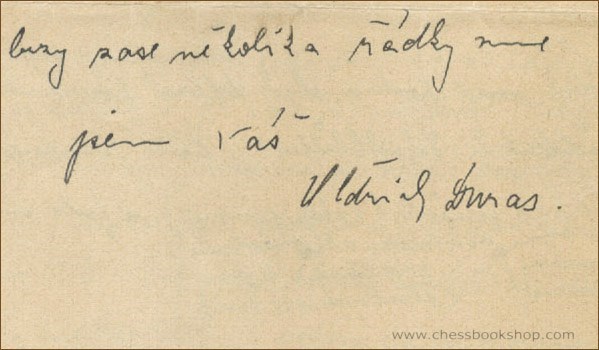 brzy zase několika řádky mne
jsem Váš
Oldřich Duras.
www.chessbookshop.com